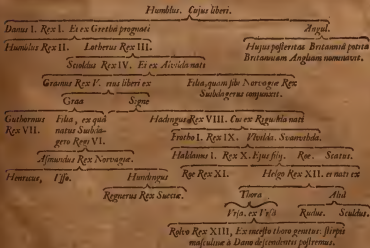 Humblus. Cujus liberi.
Danus I. Rex I. Et ex Gretha prognati
Angul.
Humblus Rex II. Lotherus Rex III.
Hujus posteritas Britanniâ potita
Britanniam Angliam nominavit.
Scioldus Rex IV. Et ex Alvilda nati
Gramus Rex V. ejus liberi ex
Filia, quam sibi Norvagiæ Rex
Suibdagerus conjunxit.
Groa Signe
Guthormus Rex VII.
Filia, ex quâ natus Suibdagero Rex VI.
Hadingus Rex VIII. Cui ex Regnilda nati
Frotho I. Rex IX. Ulvilda. Svanvehda.
Asmundus Rex Norvagiæ.
Haldanus I. Rex X. Ejus filij. Roe. Scatus.
Henricus, Uffo. Hundingus
Roe Rex XI. Helgo Rex XII. et nati ex
Regnerus Rex Sueciæ.
Thora Alij
Vrsa. ex Vrsâ Rudus. Sculdus.
Rolvo Rex XIII, Ex incesto thoro genitus: stirpis
masculinæ à Dano descendentis postremus.